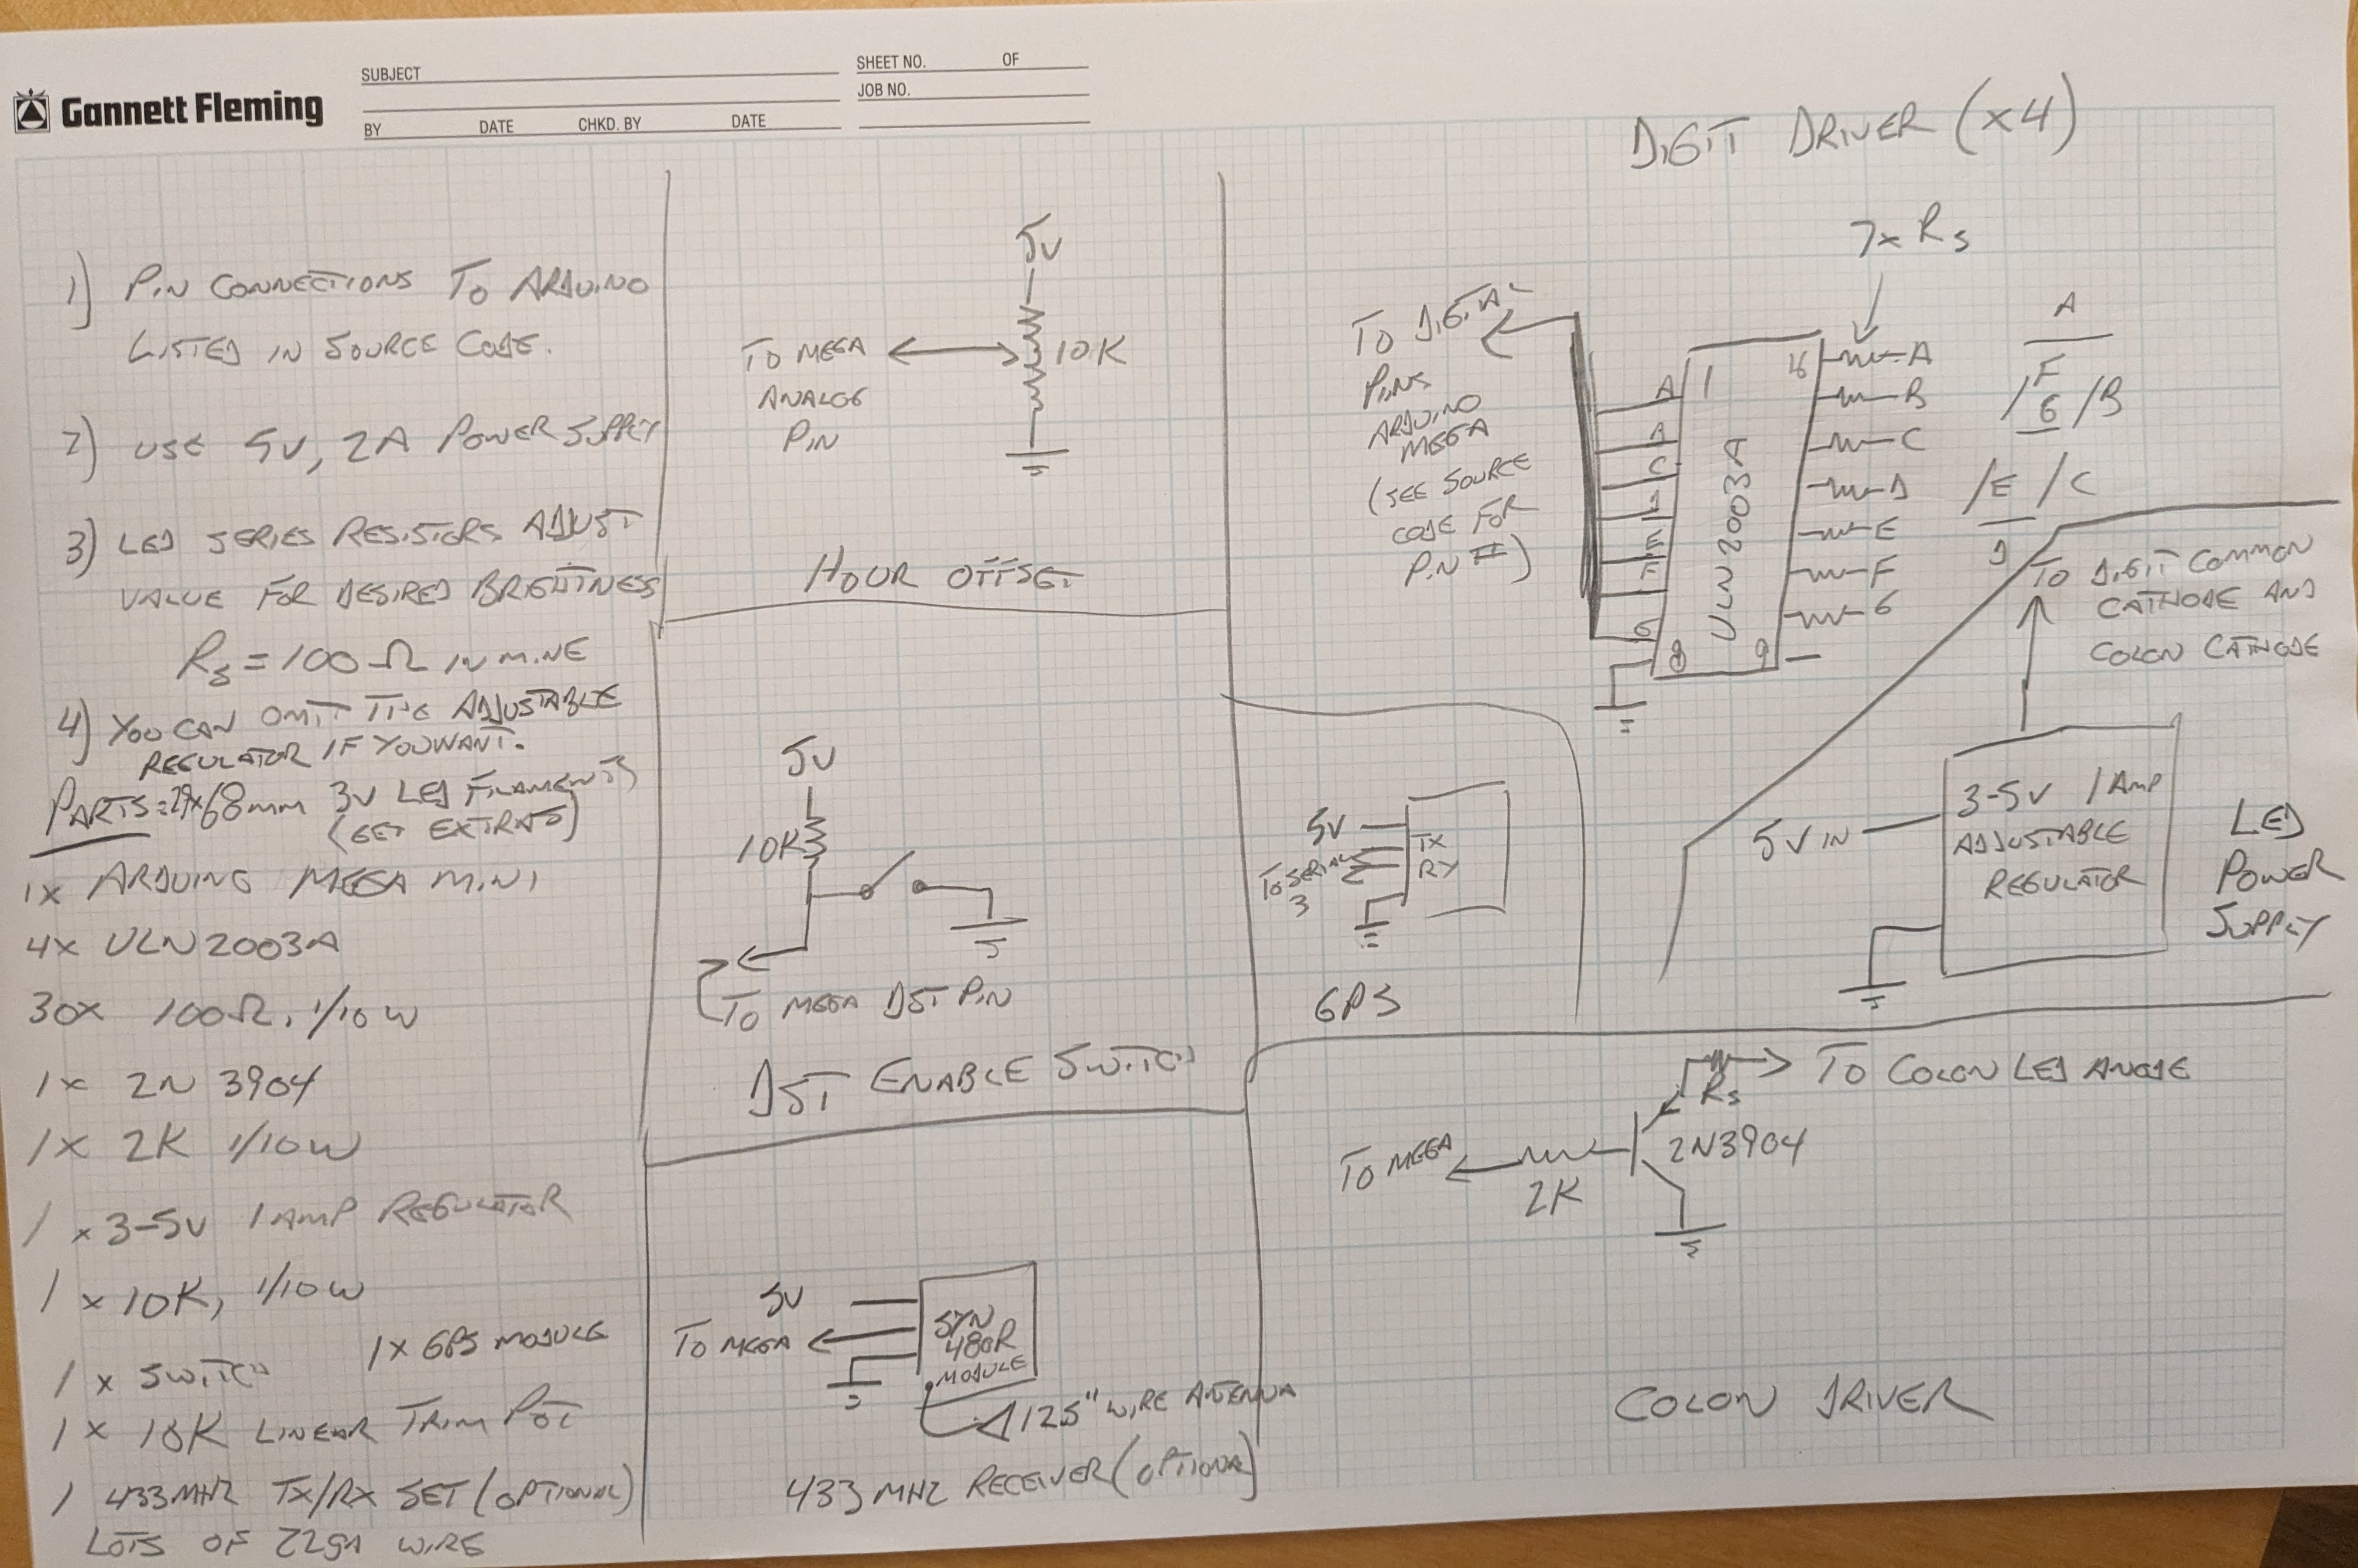 Gannett Fleming
SUBJECT
SHEET NO. OF
JOB NO.
BY DATE CHKD. BY DATE
1) PIN CONNECTIONS TO ARDUINO
LISTED IN SOURCE CODE.
2) USE 5V, 2A POWER SUPPLY
3) LED SERIES RESISTORS ADJUST
VALUE FOR DESIRED BRIGHTNESS
RS = 100 Ω IN MINE
4) YOU CAN OMIT THE ADJUSTABLE
REGULATOR IF YOU WANT.
PARTS: 29x68mm 3V LED FILAMENTS
(GET EXTRAS)
1x ARDUINO MEGA MINI
4x ULN2003A
30x 100Ω, 1/10W
1x 2N3904
1x 2K 1/10W
1 x 3-5V 1 AMP REGULATOR
1 x 10K, 1/10W
1 x SWITCH
1x GPS MODULE
1 x 10K LINEAR TRIM POT
1 433MHZ TX/RX SET (OPTIONAL)
LOTS OF 22ga WIRE
5V
TO MEGA
ANALOG
PIN
10K
HOUR OFFSET
5V
10K
TO MEGA DST PIN
DST ENABLE SWITCH
5V
TO MEGA
SYN
480R
MODULE
125" WIRE ANTENNA
433 MHZ RECEIVER (OPTIONAL)
DIGIT DRIVER (x4)
7x RS
TO DIGITAL
PINS
ARDUINO
MEGA
(SEE SOURCE
CODE FOR
PIN #)
A
A
C
D
E
F
G
1
8
16
9
ULN2003A
A
B
C
D
E
F
G
A
F
G
B
E
C
D
5V
TO SERIAL
3
TX
RX
GPS
TO DIGIT COMMON
CATHODE AND
COLON CATHODE
5V IN
3-5V 1 AMP
ADJUSTABLE
REGULATOR
LED
POWER
SUPPLY
TO COLON LED ANODE
RS
2N3904
TO MEGA
2K
COLON DRIVER